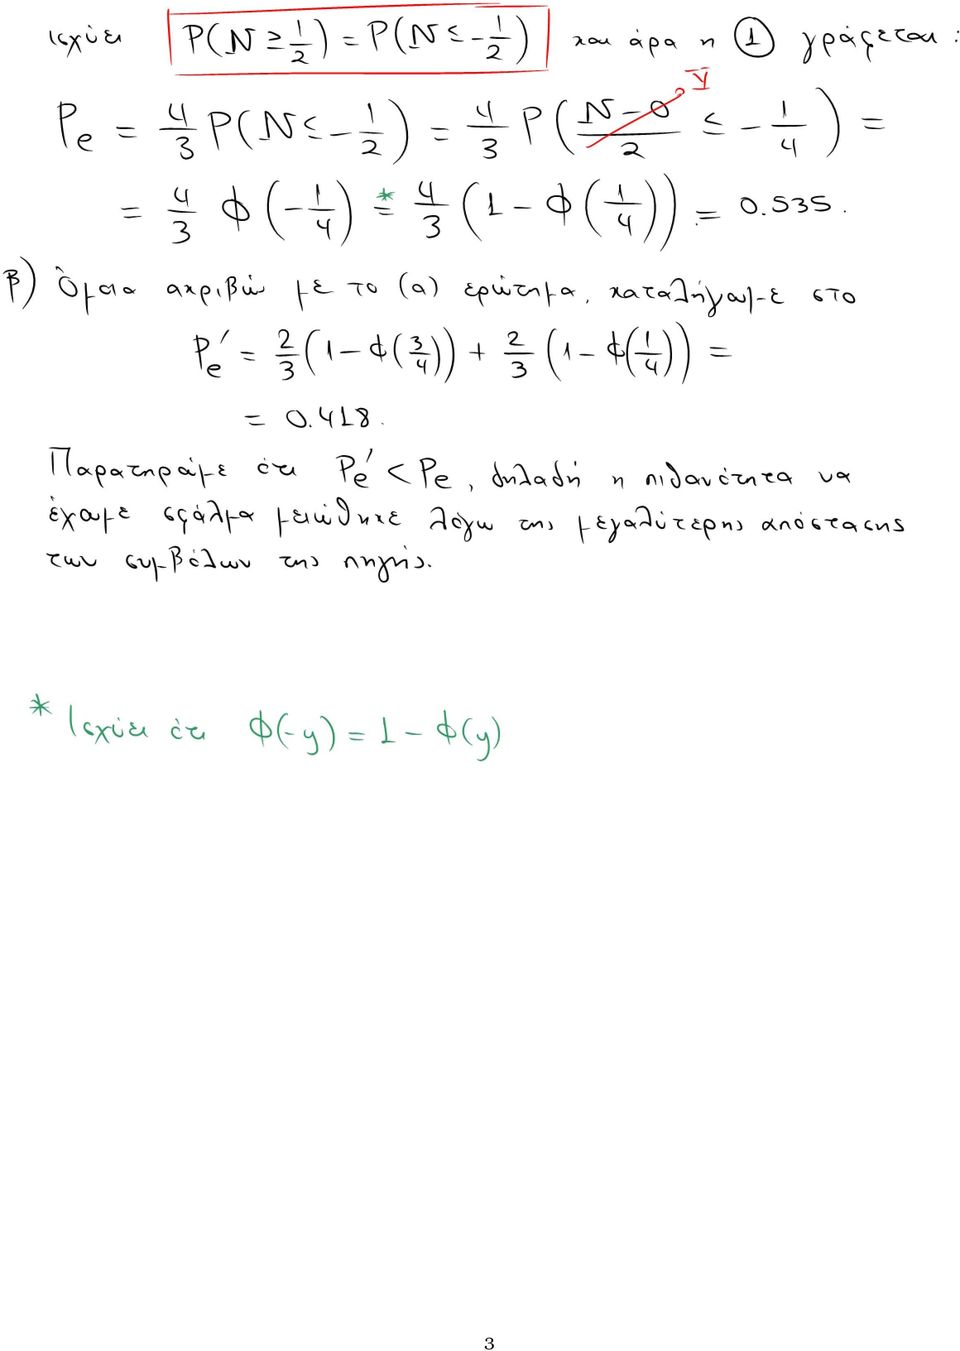 ισχύει P(N ≥ 1/2) = P(N ≤ -1/2) και άρα η ① γράφεται:
Pe = 4/3 P(N ≤ -1/2) = 4/3 P( (N-0)/2 ≤ -1/4 ) =
Y
= 4/3 Φ(-1/4) =* 4/3 (1 - Φ(1/4)) = 0.535.
β) Όμοια ακριβώς με το (α) ερώτημα, καταλήγουμε στο
Pe' = 2/3 (1 - Φ(3/4)) + 2/3 (1 - Φ(1/4)) =
= 0.418.
Παρατηρούμε ότι Pe' < Pe, δηλαδή η πιθανότητα να
έχουμε σφάλμα μειώθηκε λόγω της μεγαλύτερης απόστασης
των συμβόλων της πηγής.
* Ισχύει ότι Φ(-y) = 1 - Φ(y)
3